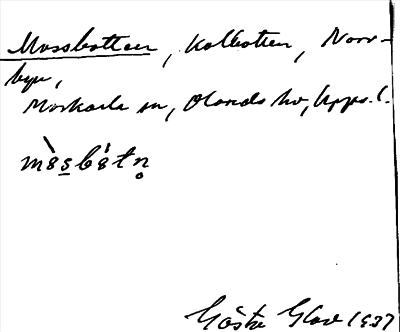 Mossbotten, Kolbotten, Norr-
byn,
Morkarla sn, Olands hd, Upps. l.
mòsbòtn̥
Gösta Glas 1937